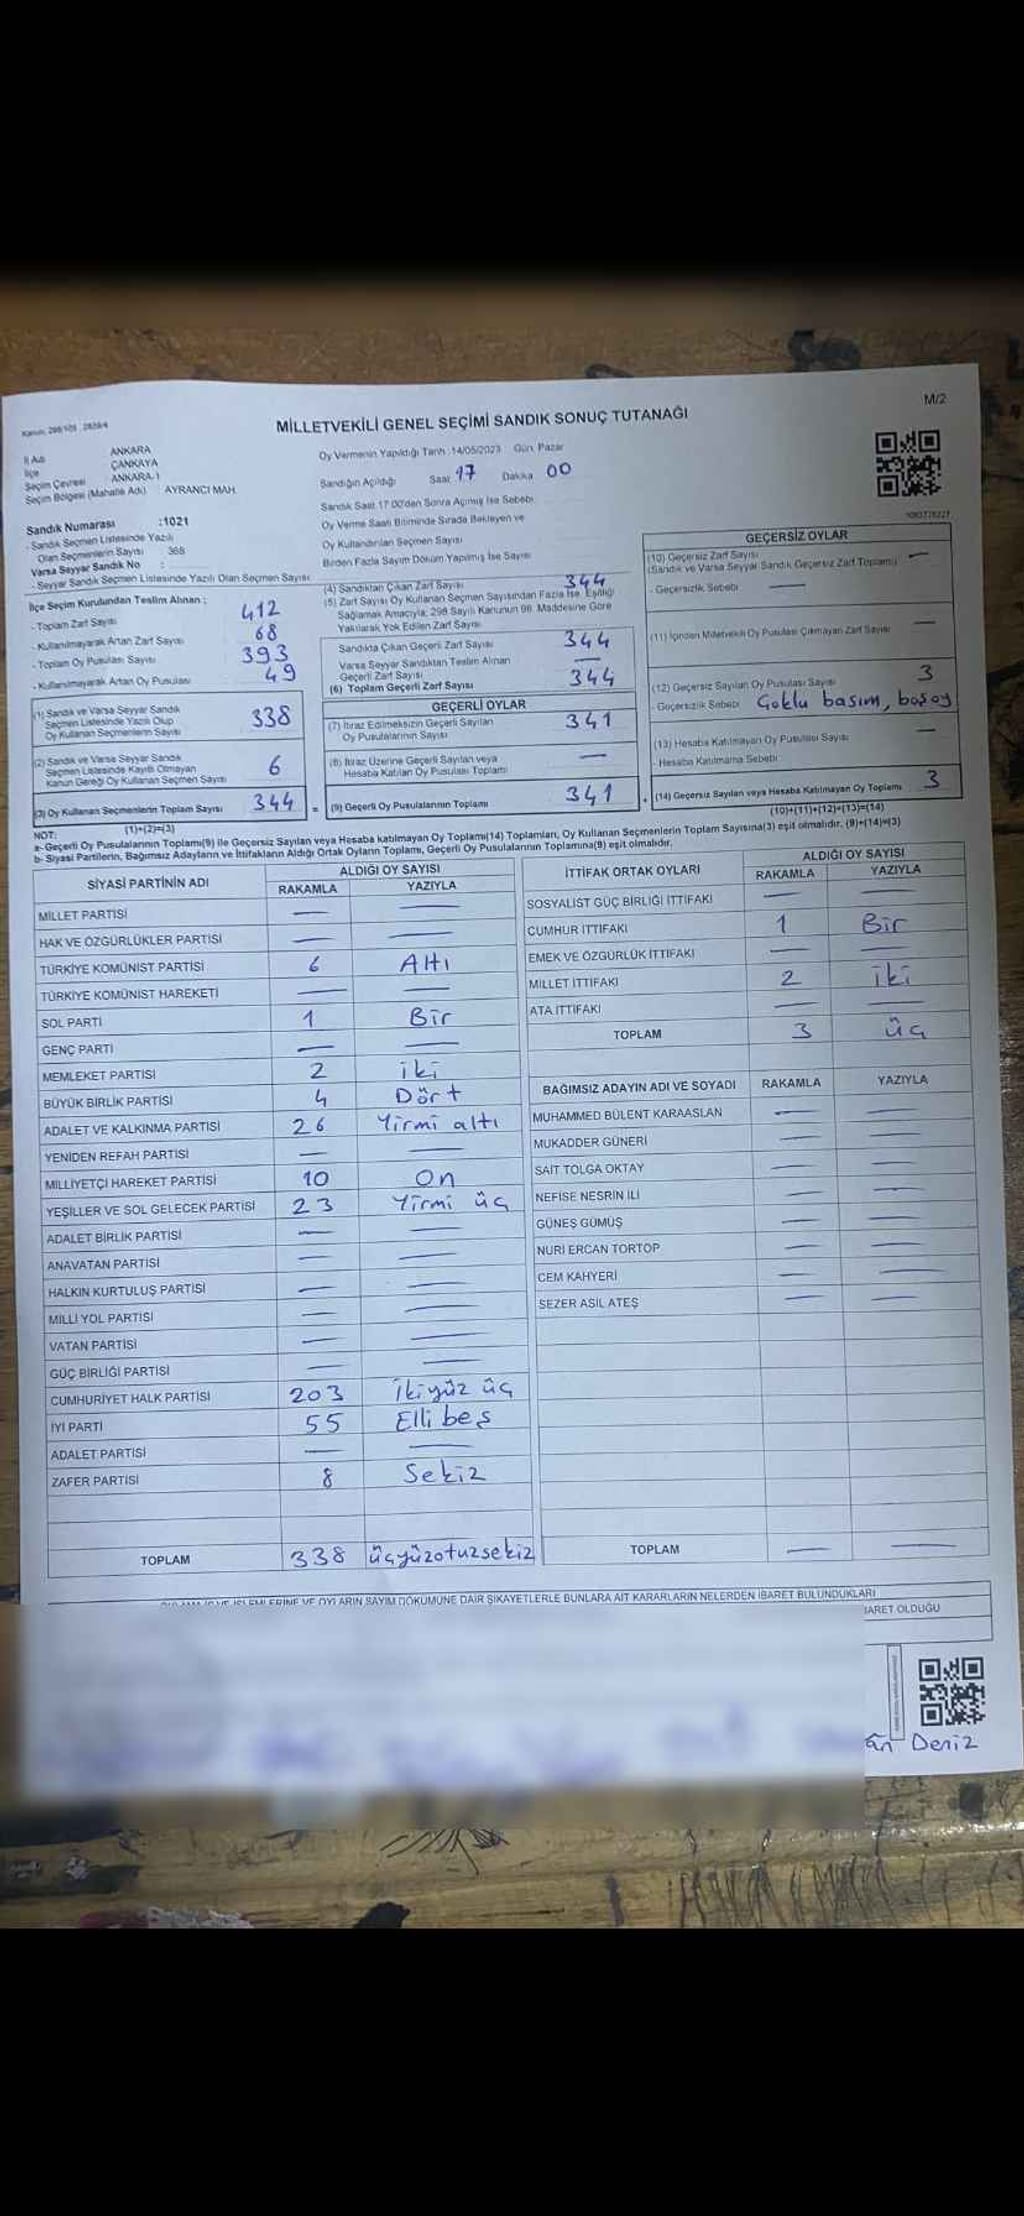 M/2
MİLLETVEKİLİ GENEL SEÇİMİ SANDIK SONUÇ TUTANAĞI
İl Adı ANKARA
İlçe ÇANKAYA
Seçim Çevresi ANKARA-1
Seçim Bölgesi (Mahalle Adı) : AYRANCI MAH.
Oy Vermenin Yapıldığı Tarih :14/05/2023 Gün: Pazar
Sandığın Açıldığı Saat 17 Dakika 00
Sandık Saat 17:00'den Sonra Açılmış İse Sebebi
Oy Verme Saati Bitiminde Sırada Bekleyen ve
Oy Kullandırılan Seçmen Sayısı
Birden Fazla Sayım Döküm Yapılmış İse Sayısı
Sandık Numarası :1021
- Sandık Seçmen Listesinde Yazılı
Olan Seçmenlerin Sayısı : 368
Varsa Seyyar Sandık No :
- Seyyar Sandık Seçmen Listesinde Yazılı Olan Seçmen Sayısı
İlçe Seçim Kurulundan Teslim Alınan :
- Toplam Zarf Sayısı 412
- Kullanılmayarak Artan Zarf Sayısı 68
- Toplam Oy Pusulası Sayısı 393
- Kullanılmayarak Artan Oy Pusulası 49
(1) Sandık ve Varsa Seyyar Sandık
Seçmen Listesinde Yazılı Olup
Oy Kullanan Seçmenlerin Sayısı 338
(2) Sandık ve Varsa Seyyar Sandık
Seçmen Listesinde Kayıtlı Olmayan
Kanun Gereği Oy Kullanan Seçmen Sayısı 6
(3) Oy Kullanan Seçmenlerin Toplam Sayısı 344 =
(1)+(2)=(3)
(4) Sandıktan Çıkan Zarf Sayısı 344
(5) Zarf Sayısı Oy Kullanan Seçmen Sayısından Fazla İse, Eşitliği
Sağlamak Amacıyla, 298 Sayılı Kanunun 98. Maddesine Göre
Yakılarak Yok Edilen Zarf Sayısı
Sandıkta Çıkan Geçerli Zarf Sayısı 344
Varsa Seyyar Sandıktan Teslim Alınan
Geçerli Zarf Sayısı —
(6) Toplam Geçerli Zarf Sayısı 344
GEÇERLİ OYLAR
(7) İtiraz Edilmeksizin Geçerli Sayılan
Oy Pusulalarının Sayısı 341
(8) İtiraz Üzerine Geçerli Sayılan veya
Hesaba Katılan Oy Pusulası Toplamı —
(9) Geçerli Oy Pusulalarının Toplamı 341 +
GEÇERSİZ OYLAR
(10) Geçersiz Zarf Sayısı —
(Sandık ve Varsa Seyyar Sandık Geçersiz Zarf Toplamı)
- Geçersizlik Sebebi —
(11) İçinden Milletvekili Oy Pusulası Çıkmayan Zarf Sayısı —
(12) Geçersiz Sayılan Oy Pusulası Sayısı 3
- Geçersizlik Sebebi Çoklu basım, boş oy
(13) Hesaba Katılmayan Oy Pusulası Sayısı —
- Hesaba Katılmama Sebebi
(14) Geçersiz Sayılan veya Hesaba Katılmayan Oy Toplamı 3
(10)+(11)+(12)+(13)=(14)
NOT:
a- Geçerli Oy Pusulalarının Toplamı(9) ile Geçersiz Sayılan veya Hesaba katılmayan Oy Toplamı(14) Toplamları, Oy Kullanan Seçmenlerin Toplam Sayısına(3) eşit olmalıdır. (9)+(14)=(3)
b- Siyasi Partilerin, Bağımsız Adayların ve İttifakların Aldığı Ortak Oyların Toplamı, Geçerli Oy Pusulalarının Toplamına(9) eşit olmalıdır.
SİYASİ PARTİNİN ADI ALDIĞI OY SAYISI
RAKAMLA YAZIYLA
MİLLET PARTİSİ — —
HAK VE ÖZGÜRLÜKLER PARTİSİ — —
TÜRKİYE KOMÜNİST PARTİSİ 6 Altı
TÜRKİYE KOMÜNİST HAREKETİ — —
SOL PARTİ 1 Bir
GENÇ PARTİ — —
MEMLEKET PARTİSİ 2 iki
BÜYÜK BİRLİK PARTİSİ 4 Dört
ADALET VE KALKINMA PARTİSİ 26 Yirmi altı
YENİDEN REFAH PARTİSİ — —
MİLLİYETÇİ HAREKET PARTİSİ 10 On
YEŞİLLER VE SOL GELECEK PARTİSİ 23 Yirmi üç
ADALET BİRLİK PARTİSİ — —
ANAVATAN PARTİSİ — —
HALKIN KURTULUŞ PARTİSİ — —
MİLLİ YOL PARTİSİ — —
VATAN PARTİSİ — —
GÜÇ BİRLİĞİ PARTİSİ — —
CUMHURİYET HALK PARTİSİ 203 İkiyüz üç
İYİ PARTİ 55 Elli beş
ADALET PARTİSİ — —
ZAFER PARTİSİ 8 Sekiz
TOPLAM 338 üçyüzotuzsekiz
İTTİFAK ORTAK OYLARI ALDIĞI OY SAYISI
RAKAMLA YAZIYLA
SOSYALİST GÜÇ BİRLİĞİ İTTİFAKI — —
CUMHUR İTTİFAKI 1 Bir
EMEK VE ÖZGÜRLÜK İTTİFAKI — —
MİLLET İTTİFAKI 2 iki
ATA İTTİFAKI — —
TOPLAM 3 üç
BAĞIMSIZ ADAYIN ADI VE SOYADI RAKAMLA YAZIYLA
MUHAMMED BÜLENT KARAASLAN — —
MUKADDER GÜNERİ — —
SAİT TOLGA OKTAY — —
NEFİSE NESRİN İLİ — —
GÜNEŞ GÜMÜŞ — —
NURİ ERCAN TORTOP — —
CEM KAHYERİ — —
SEZER ASİL ATEŞ — —
TOPLAM — —
VE OYLARIN SAYIM DÖKÜMÜNE DAİR ŞİKAYETLERLE BUNLARA AİT KARARLARIN NELERDEN İBARET BULUNDUKLARI
BARET OLDUĞU
ân Deniz